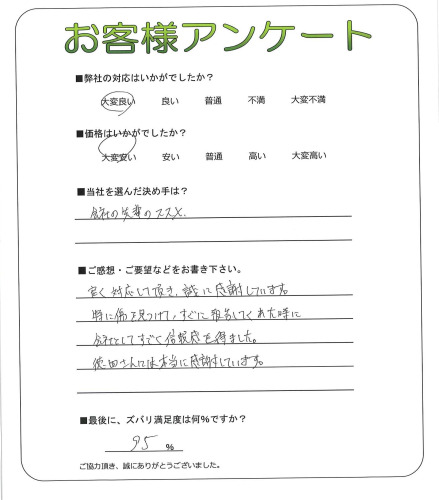 お客様アンケート
■弊社の対応はいかがでしたか？
大変良い 良い 普通 不満 大変不満
■価格はいかがでしたか？
大変安い 安い 普通 高い 大変高い
■当社を選んだ決め手は？
会社の先輩のススメ。
■ご感想・ご要望などをお書き下さい。
良く対応して頂き、誠に感謝しています。
特に傷を見つけて、すぐに報告してくれた時に
会社としてすごく信頼感を得ました。
徳田さんには本当に感謝しています。
■最後に、ズバリ満足度は何％ですか？
95 ％
ご協力頂き、誠にありがとうございました。